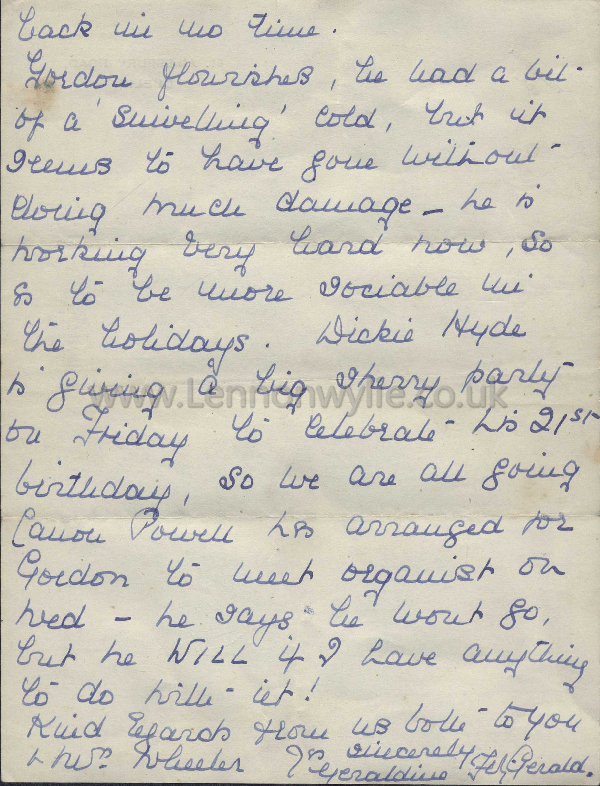 back in no time.
Gordon flourishes, he had a bit
of a 'snivelling' cold, but it
seems to have gone without
doing much damage – he is
working very hard now, so
as to be more sociable in
the holidays. Dickie Hyde
is giving a big sherry party
on Friday to celebrate his 21st
birthday, so we are all going
Canon Powell has arranged for
Gordon to meet organist on
Wed – he says he wont go,
but he WILL if I have anything
to do with it!
Kind Regards from us both to you
+ Mrs. Wheeler Yrs sincerely
Geraldine FitzGerald.
www.Lennonwylie.co.uk